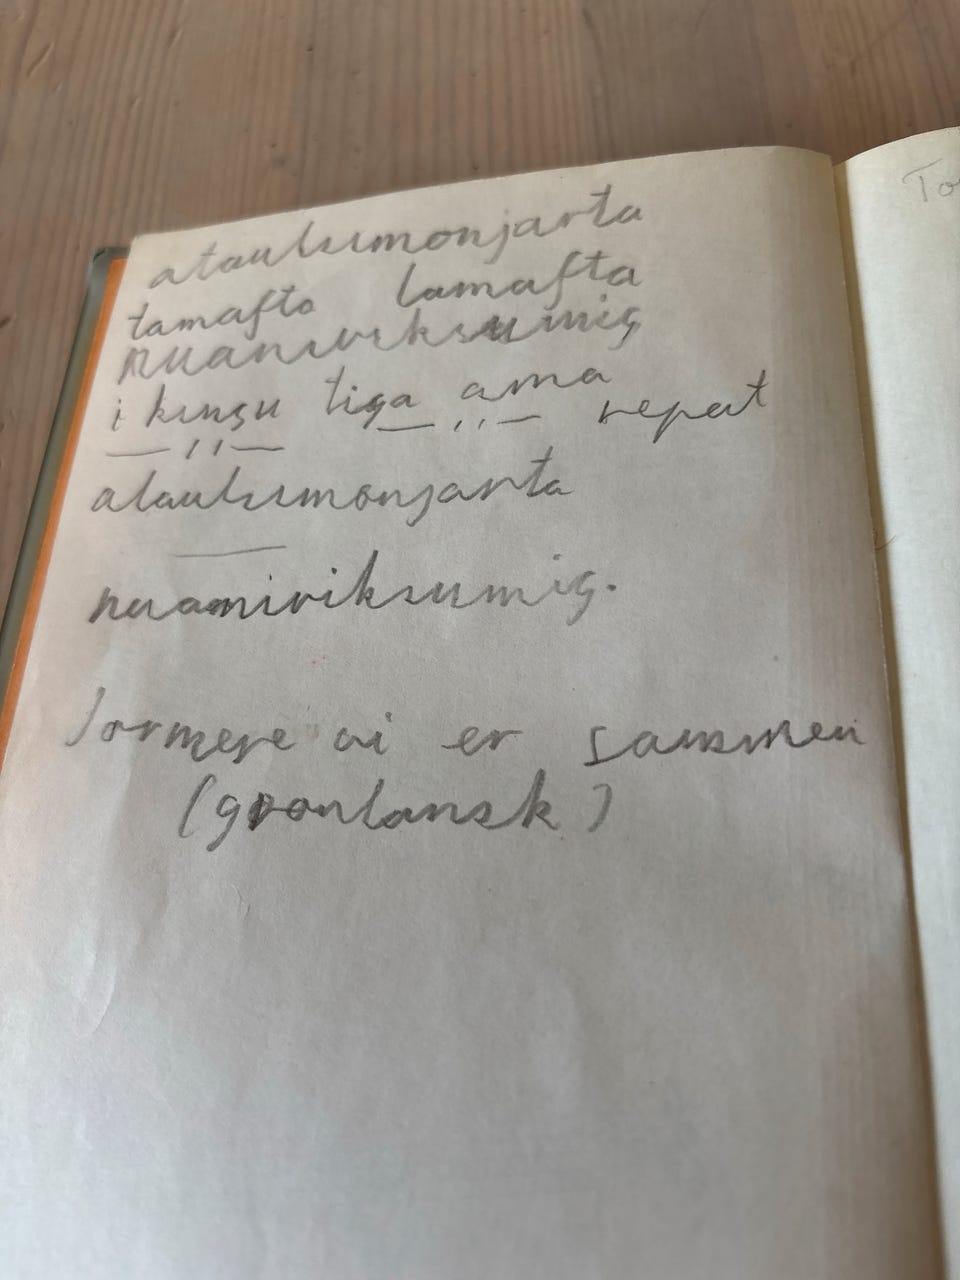 ataukumonjarta
tamafta tamafta
nuaniviksumig
i kungu tiga ama
— 11 — — 11 — repeat
ataukumonjarta
nuaniviksumig.
Jo mere vi er sammen
(grønlansk)
To